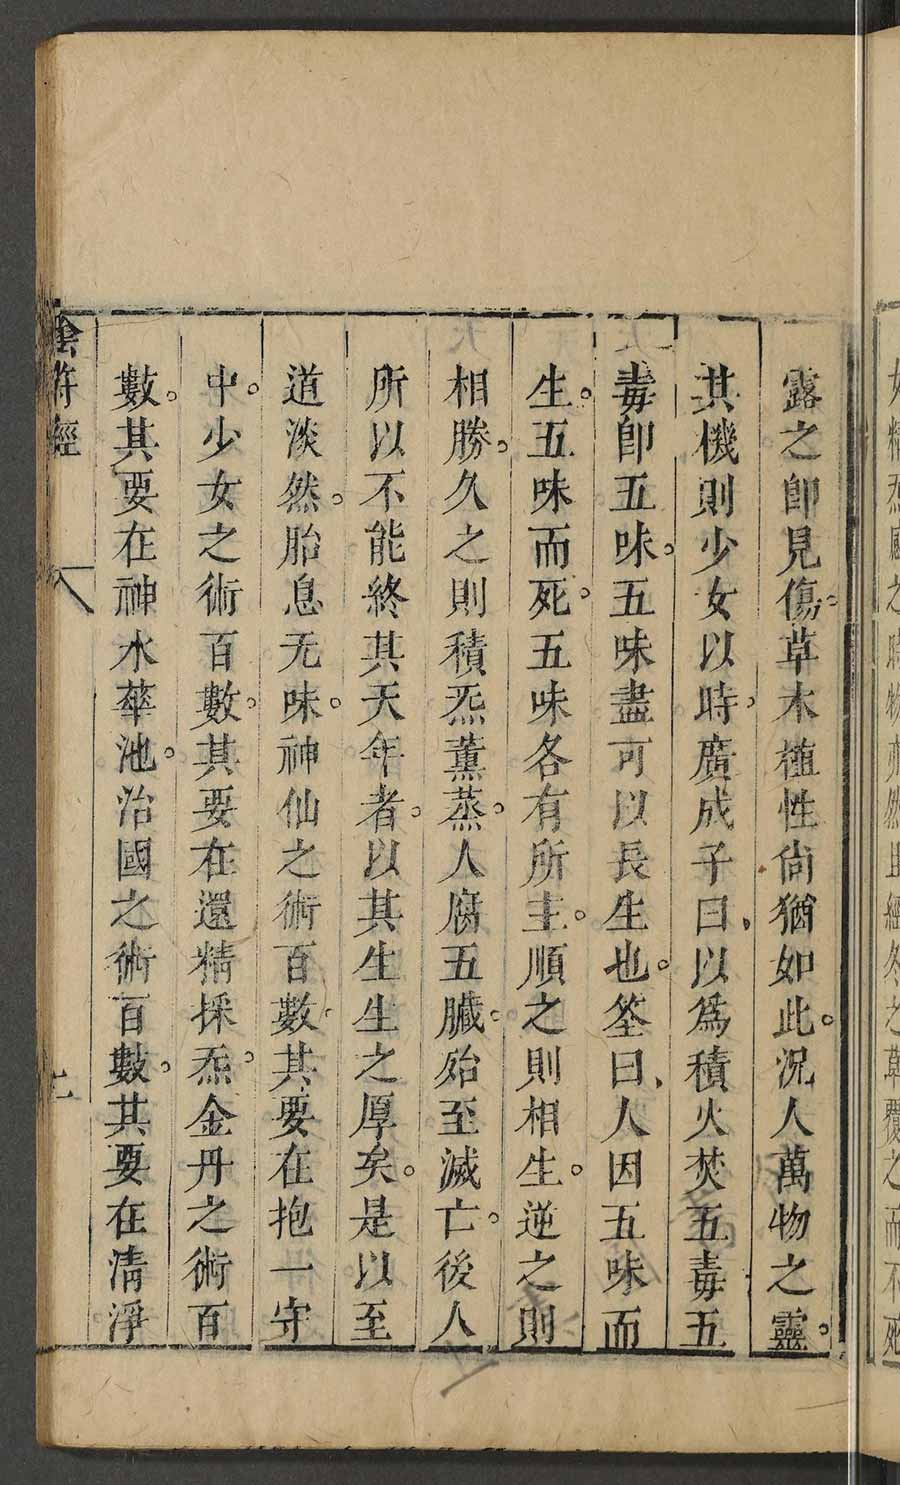 如精炁感之時物亦然且經冬之草覆之而不死
露之卽見傷。草木植性尙猶如此。況人萬物之靈。
其機則少女以時。廣成子曰、以爲積火焚五毒五
毒卽五味。五味盡可以長生也。筌曰、人因五味而
生。五味而死。五味各有所主。順之則相生。逆之則
相勝。久之則積炁薰蒸。人腐五臟。殆至滅亡。後人
所以不能終其天年者。以其生生之厚矣。是以至
道淡然。胎息无味。神仙之術百數。其要在抱一守
中。少女之術百數。其要在還精採炁。金丹之術百
數。其要在神水華池。治國之術百數。其要在清淨
陰符經 八